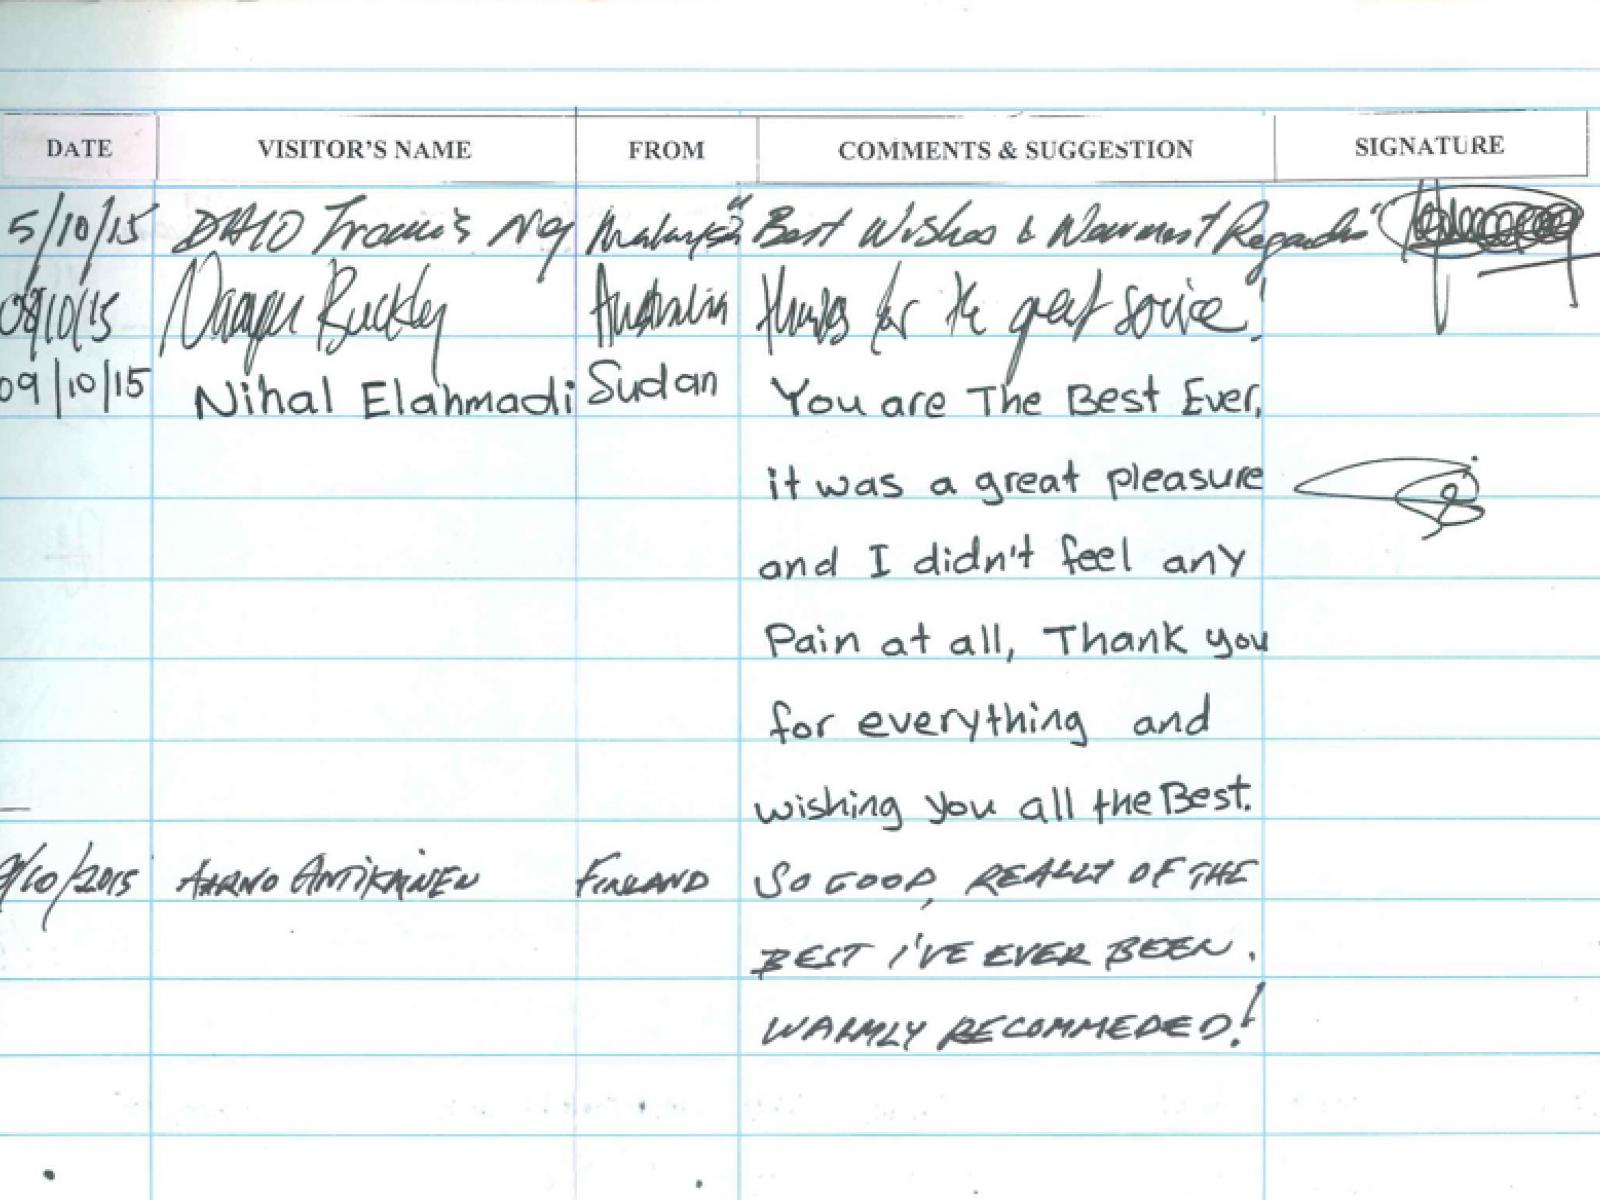 DATE VISITOR'S NAME FROM COMMENTS & SUGGESTION SIGNATURE
5/10/15 DATO Francis Ng Malaysia "Best Wishes & Warmest Regards"
08/10/15 Buckley Australia Thanks for the great service!
09/10/15 Nihal Elahmadi Sudan You are The Best Ever,
it was a great pleasure
and I didn't feel any
Pain at all, Thank you
for everything and
wishing you all the Best.
9/10/2015 AARNO ANTIKAINEN FINLAND SO GOOD, REALLY OF THE
BEST I'VE EVER BEEN.
WARMLY RECOMMEDED!